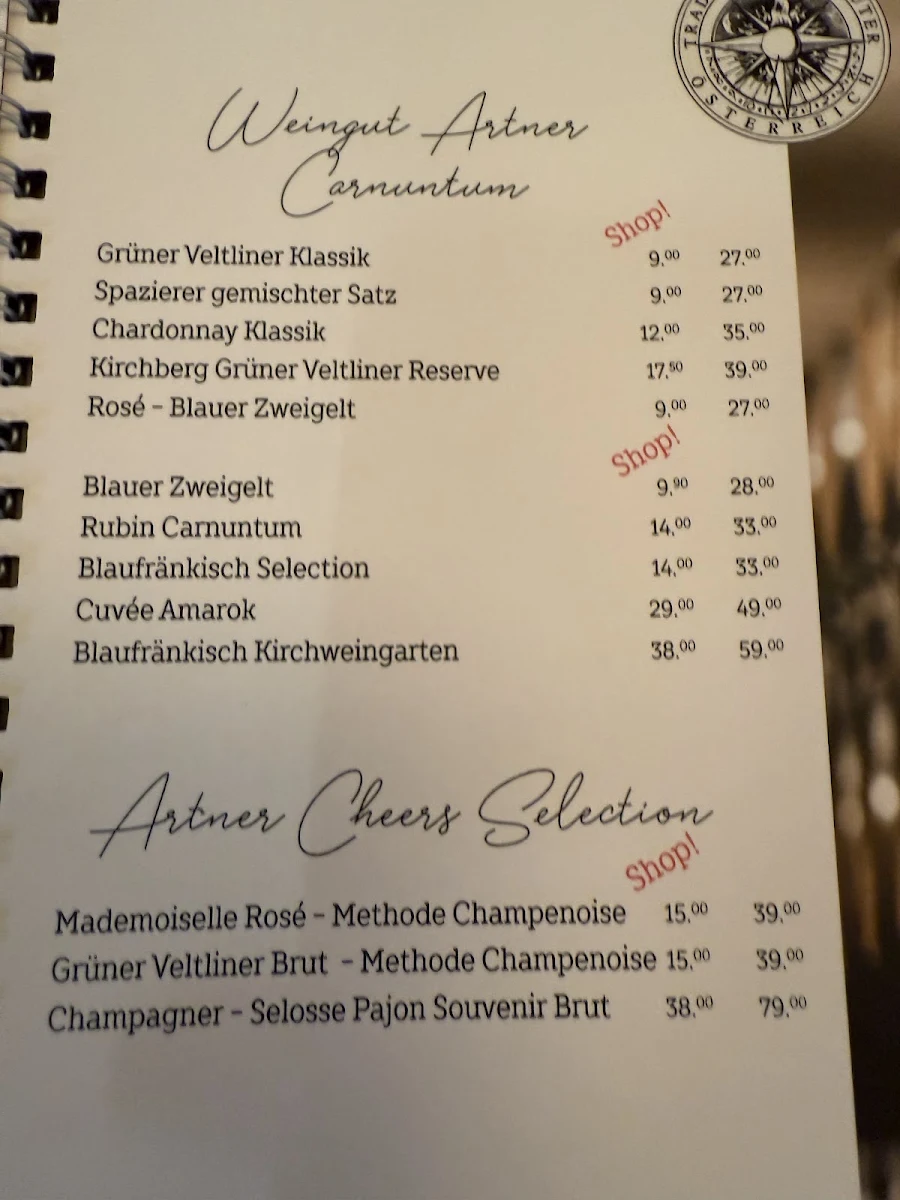 TRAD
TER
ÖSTERREICH
Weingut Artner
Carnuntum
Shop!
Grüner Veltliner Klassik 9,00 27,00
Spazierer gemischter Satz 9,00 27,00
Chardonnay Klassik 12,00 35,00
Kirchberg Grüner Veltliner Reserve 17,50 39,00
Rosé - Blauer Zweigelt 9,00 27,00
Shop!
Blauer Zweigelt 9,90 28,00
Rubin Carnuntum 14,00 33,00
Blaufränkisch Selection 14,00 33,00
Cuvée Amarok 29,00 49,00
Blaufränkisch Kirchweingarten 38,00 59,00
Artner Cheers Selection
Shop!
Mademoiselle Rosé - Methode Champenoise 15,00 39,00
Grüner Veltliner Brut - Methode Champenoise 15,00 39,00
Champagner - Selosse Pajon Souvenir Brut 38,00 79,00